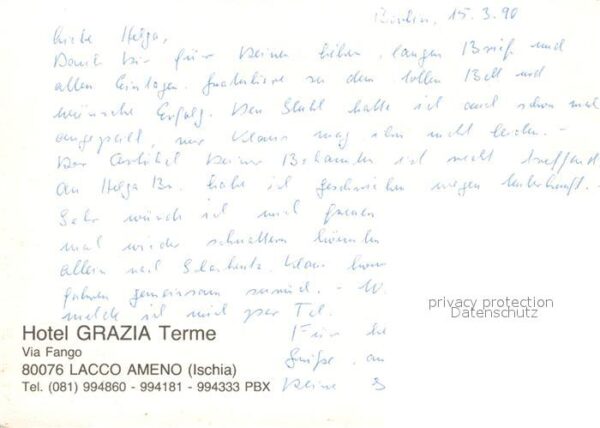 Berlin, 15.3.90
Liebe Helga,
Dank Dir für Deinen lieben, langen Brief und
allen Einlagen. Gratuliere zu dem tollen Bett und
wünsche Erfolg. Den Stuhl hatte ich auch schon mal
angepeilt, nur Klaus mag ihn nicht leiden. -
Der Artikel Deiner Bekannten ist recht treffend
An Helga Br. habe ich geschrieben wegen Unterkunft. -
Sehr würde ich mich freuen
mal wieder schnattern können
allein nach Klaus
fahren gemeinsam zurück. - W.
melde ich mich per Tel.
Für
Grüße an
Deine
Hotel GRAZIA Terme
Via Fango
80076 LACCO AMENO (Ischia)
Tel. (081) 994860 - 994181 - 994333 PBX
privacy protection
Datenschutz